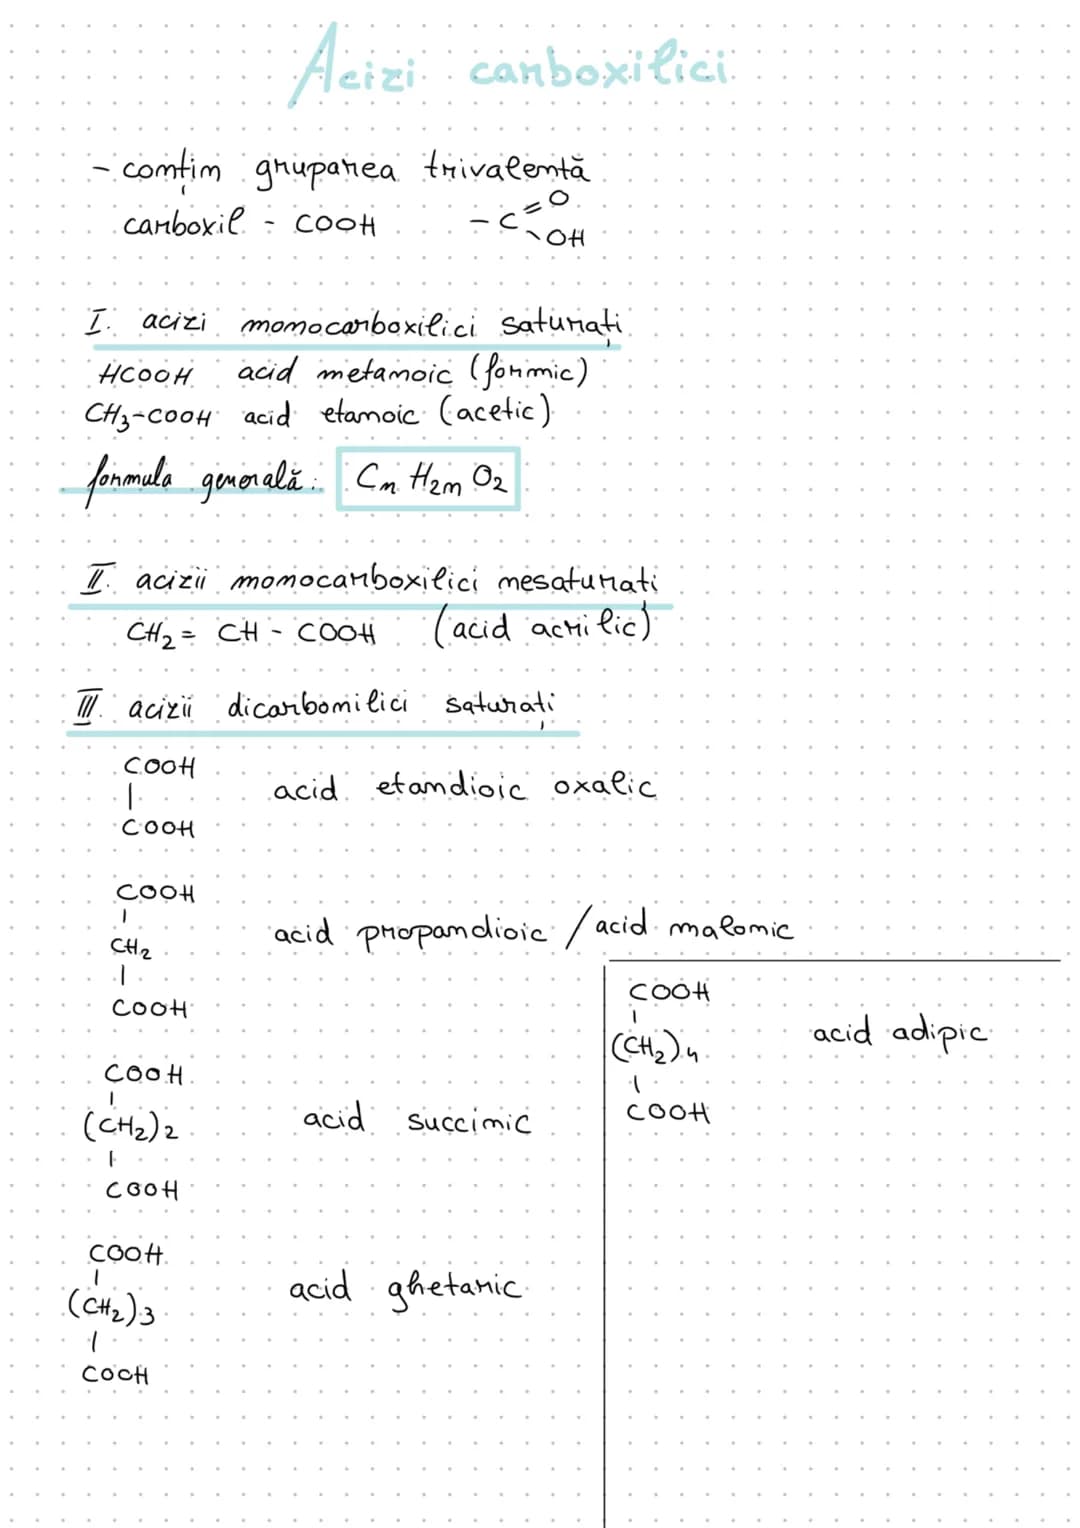 Acizi carboxilici
- conțin gruparea trivalentă
carboxil - COOH - C = O
\ OH
I. acizi monocarboxilici saturați
HCOOH acid metanoic (formic)
CH3-COOH acid etanoic (acetic)
formula generală: Cn H2n O2
II. acizii monocarboxilici nesaturati
CH2 = CH - COOH (acid acrilic)
III. acizii dicarbonilici saturați
COOH
|
COOH
acid etandioic oxalic
COOH
|
CH2
|
COOH
acid propandioic / acid malonic
COOH
|
(CH2)2
|
COOH
acid succinic
COOH
|
(CH2)3
|
COOH
acid ghetaric
COOH
|
(CH2)4
|
COOH
acid adipic